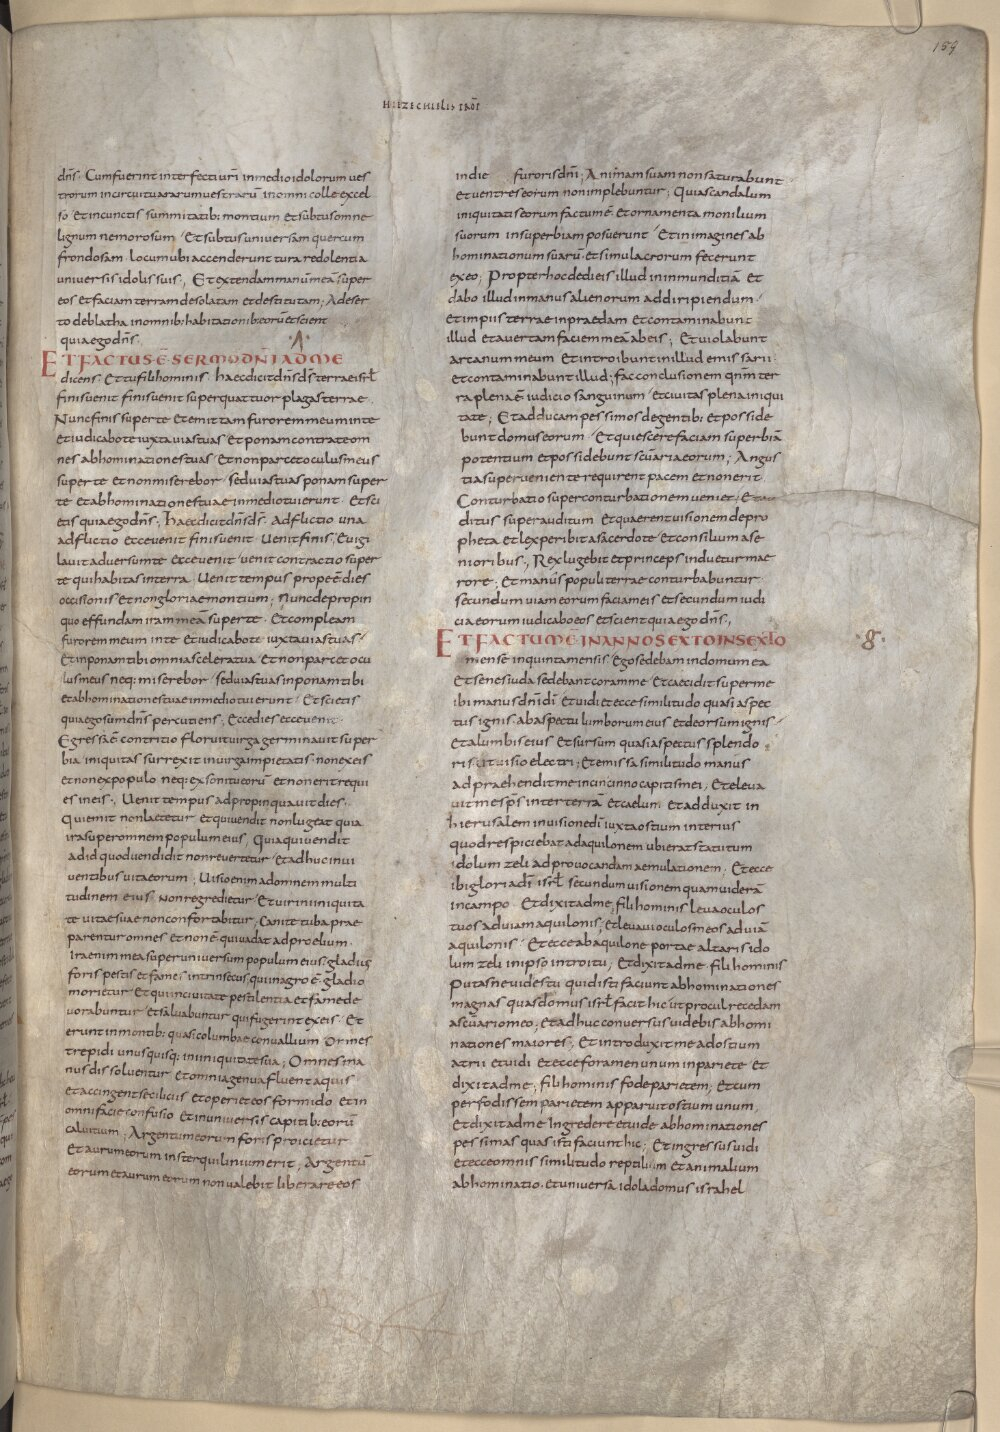 159
HIEZECHIELIS
dn̄s. Cum fuerint interfecti ur̄i in medio idolorum ues
trorum in circuitu ararum uestrarū in omni colle excel
so Et in cunctis summitatib; montium Et subtus omne
lignum nemorosum Et subtus uniuersam quercum
frondosam locum ubi accenderunt tura redolentia
uniuersis idolis suis; Et extendam manū meā super
eos et faciam terram desolatam et destitutam; A deser
to deblatha in omnib; habitationib; eorū et scient
quia ego dn̄s.
.7.
ET FACTUS Ē SERMO DN̄I AD ME
dicens. Et tu fili hominis haec dicit dn̄s ds̄ terrae isrl̄
finis uenit finis uenit super quattuor plagas terrae
Nunc finis super te Et emittam furorem meum in te
et iudicabo te iuxta uias tuas Et ponam contra te om
nes abhominationes tuas Et non parcet oculus meus
super te et non miserebor sed uias tuas ponam super
te et abhominationes tuae in medio tui erunt. Et sci
etis quia ego dn̄s; haec dicit dn̄s ds̄. Adflictio una
adflictio ecce uenit finis uenit. Uenit finis, Euigi
lauit aduersum te Ecce uenit uenit contractio super
te qui habitas in terra. Uenit tempus prope ē dies
occisionis et non gloriae montium; Nunc de propin
quo effundam iram meā super te. Et compleam
furorem meum in te et iudicabo te iuxta uias tuas
Et inponam tibi omnia scelera tua Et non parcet ocu
lus meus neq; miserebor sed uias tuas inponam tibi
et abhominationes tuae in medio tui erunt Et scietis
quia ego sum dn̄s percutiens; Ecce dies ecce uenit
Egressa ē contritio floruit uirga germinauit super
bia iniquitas surrexit in uirga impietatis non ex eis
et non ex populo neq; ex sonitu eorū et non erit requi
es in eis; Uenit tempus adpropinquauit dies.
Qui emit non laetetur et qui uendit non lugeat quia
ira super omnem populum eius; Quia qui uendit
ad id quod uendidit non reuertetur Et adhuc in ui
uentibus uita eorum; Uisio enim ad omnem multi
tudinem eius non regredietur Et uir in iniquita
te uitae suae non confortabitur; Canite tuba prae
parentur omnes et non ē qui uadat ad proelium.
Ira enim mea super uniuersum populum eius; gladius
foris pestis et fames intrinsecus, qui in agro ē gladio
morietur Et qui in ciuitate pestilentia et fame de
uorabuntur Et saluabuntur qui fugerint ex eis Et
erunt in montib; quasi columbae conuallium Omnes
trepidi unusquisq; in iniquitate sua; Omnes ma
nus dissoluentur Et omnia genua fluent aquis
et accingent se ciliciis et operiet eos formido et in
omni facie confusio et in uniuersis capitib; eorū
caluitium; Argentum eorum foris proicietur
Et aurum eorum in sterquilinium erit; Argentū
eorum et aurum eorum non ualebit liberare eos
in die furoris dn̄i; Animam suam non saturabunt
et uentres eorum non implebuntur; Quia scandalum
iniquitatis eorum factum ē Et ornamenta monilium
suorum in superbiam posuerunt Et imagines ab
hominationum suarū et simulacrorum fecerunt
ex eo; Propter hoc dedi eis illud in inmunditiā Et
dabo illud in manus alienorum ad diripiendum
et impiis terrae in praedam Et contaminabunt
illud et auertam faciem meā ab eis; Et uiolabunt
arcanum meum Et introibunt in illud emissarii
et contaminabunt illud; fac conclusionem qnm̄ ter
ra plena ē iudicio sanguinum et ciuitas plena iniqui
tate; Et adducam pessimos de gentib; et posside
bunt domus eorum Et quiescere faciam superbiā
potentium et possidebunt scūaria eorum; Angus
tia superueniente requirent pacem et non erit
Conturbatio super conturbationem ueniet; Et au
ditus super auditum Et quaerent uisionem de pro
pheta et lex peribit a sacerdote et consilium a se
nioribus; Rex lugebit et princeps induetur mae
rore; Et manus populi terrae conturbabuntur
secundum uiam eorum faciam eis et secundum iudi
cia eorum iudicabo eos et scient quia ego dn̄s;
ET FACTUM Ē IN ANNO SEXTO IN SEXTO
.8.
mense in quinta mensis Ego sedebam in domu mea
Et senes iuda sedebant coram me Et caecidit super me
ibi manus dn̄i dī Et uidi et ecce similitudo quasi aspec
tus ignis ab aspectu lumborum eius et deorsum ignis
Et a lumbis eius Et sursum quasi aspectus splendo
ris ut uisio electri; Et emissa similitudo manus
adpraehendit me in cincinno capitis mei, Et eleua
uit me sp̄s inter terrā et caelum Et adduxit in
hierusalem in uisione dī iuxta ostium interius
quod respiciebat ad aquilonem ubi erat statutum
idolum zeli ad prouocandam aemulationem. Et ecce
ibi gloria dī isrl̄ secundum uisionem quam uiderā
in campo Et dixit ad me, fili hominis leua oculos
tuos ad uiam aquilonis; Et leuaui oculos meos ad uiā
aquilonis Et ecce ab aquilone portae altaris ido
lum zeli in ipso introitu; Et dixit ad me fili hominis
Putasne uides tu quid isti faciunt abhominationes
magnas quas domus isrl̄ facit hic ut procul recedam
a scūario meo; Et adhuc conuersus uidebis abhomi
nationes maiores; Et introduxit me ad ostium
atrii Et uidi et ecce foramen unum in pariete Et
dixit ad me; fili hominis fode parietem; Et cum
perfodissem parietem apparuit ostium unum,
Et dixit ad me Ingredere et uide abhominationes
pessimas quas isti faciunt hic; Et ingressus uidi
et ecce omnis similitudo reptilium et animalium
abhominatio et uniuersa idola domus israhel